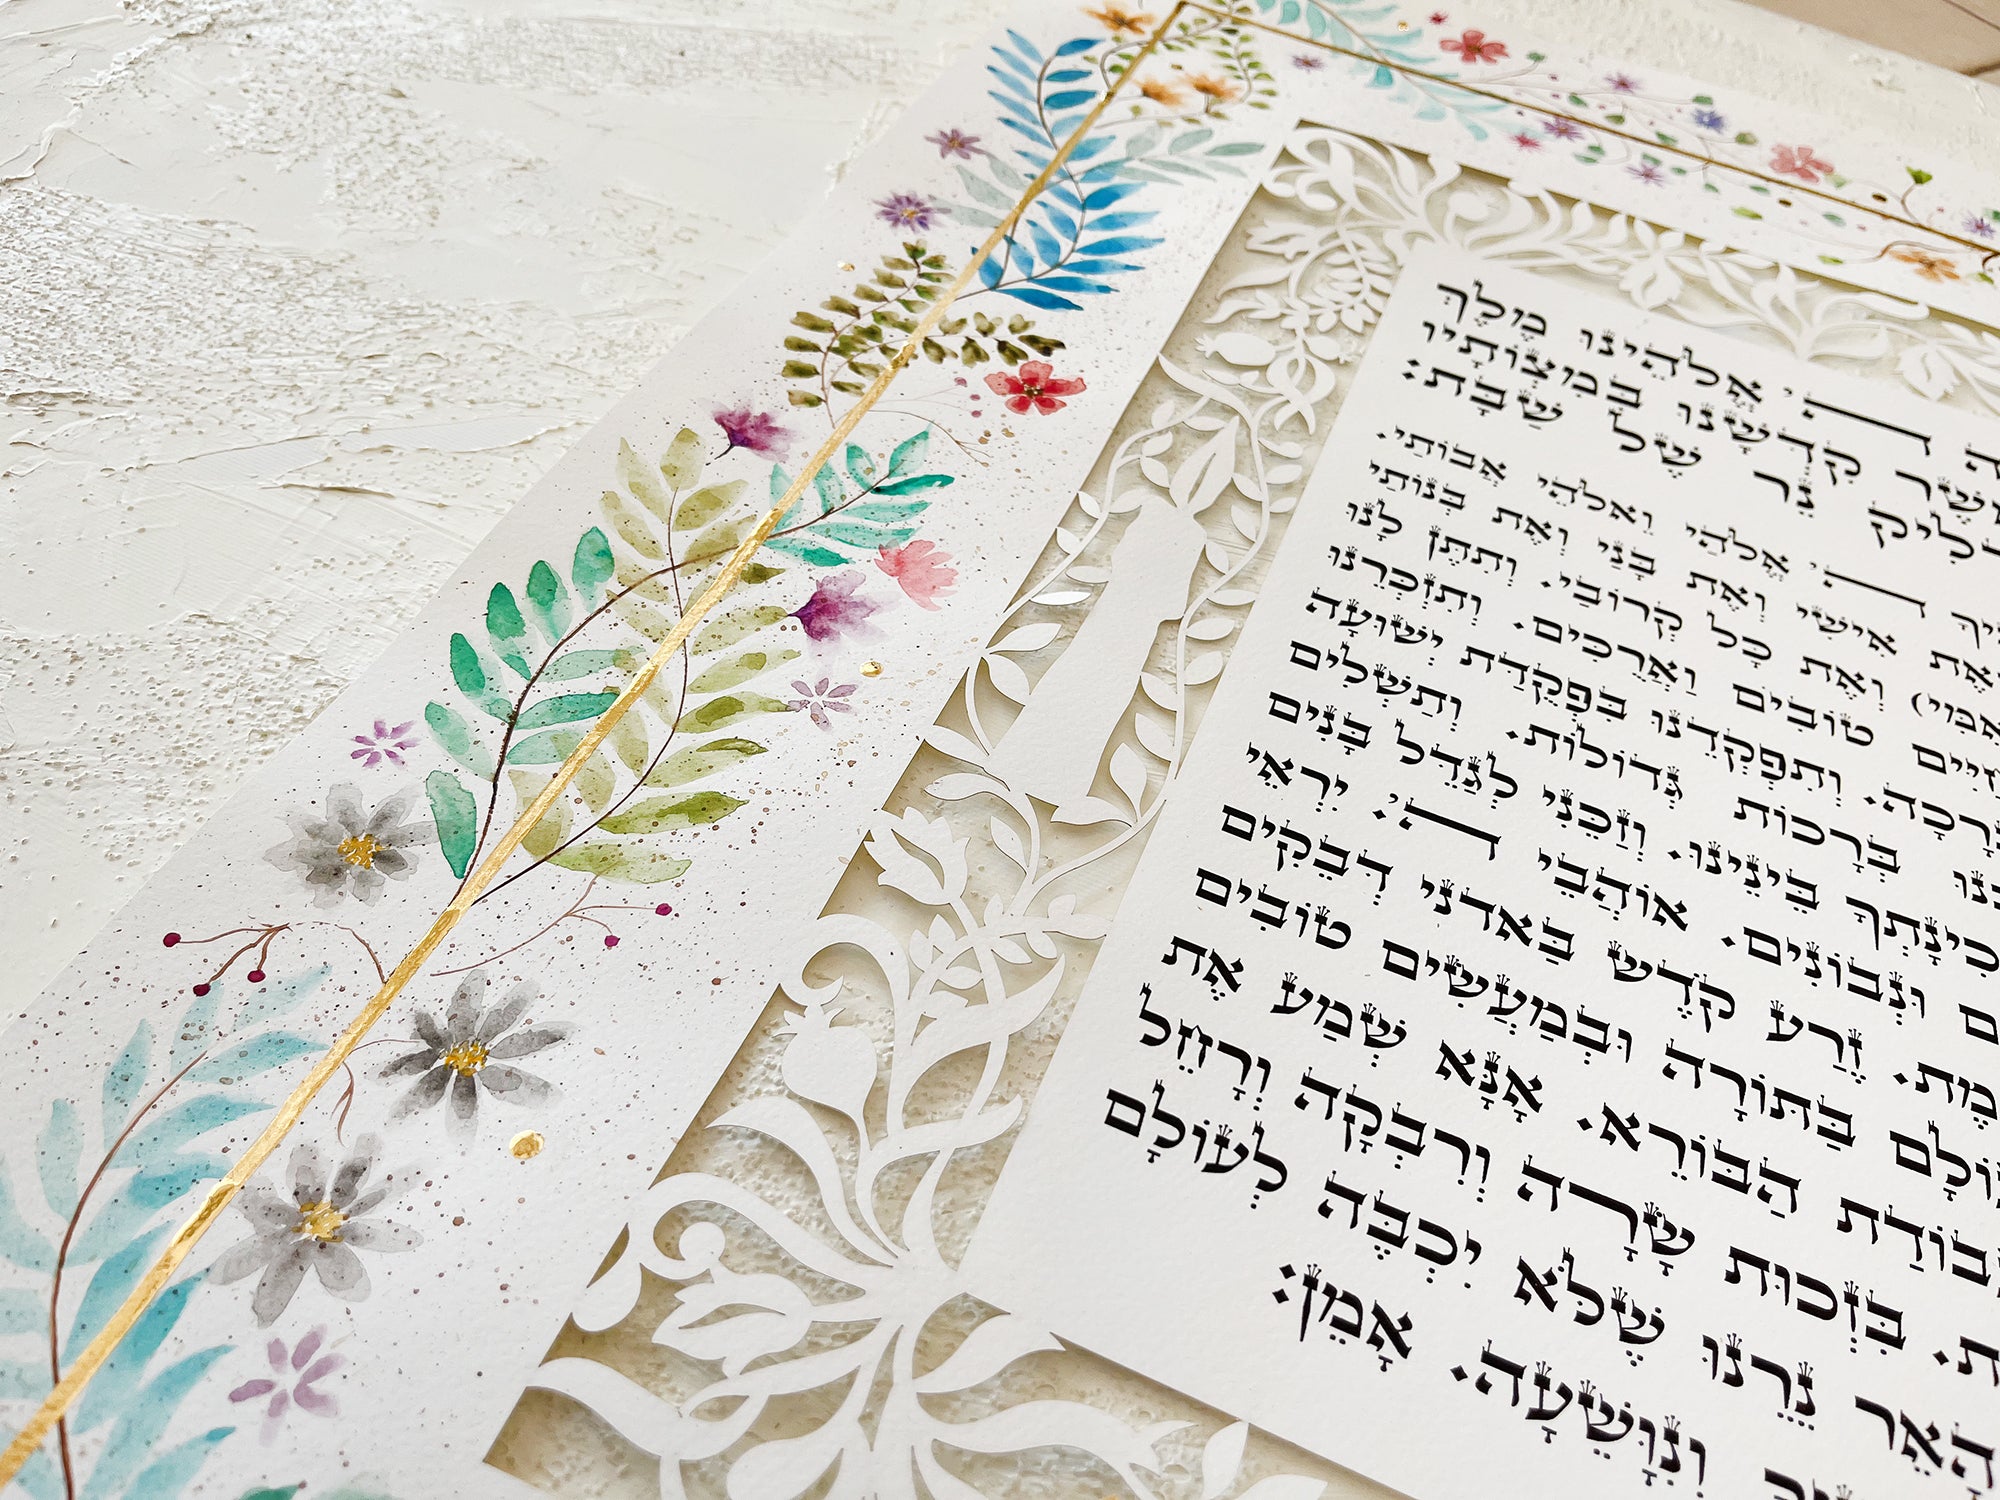 ה׳ אֱלֹהֵינוּ מֶלֶךְ
קִדְּשָׁנוּ בְּמִצְוֹתָיו
נֵר שֶׁל שַׁבָּת:
ה׳ אֱלֹהַי וֵאלֹהֵי אֲבוֹתַי.
אִישִׁי וְאֶת בָּנַי וְאֶת בְּנוֹתַי
וְאֶת כָּל קְרוֹבַי. וְתִתֵּן לָנוּ
טוֹבִים וַאֲרֻכִּים. וְתִזְכְּרֵנוּ
וְתִפְקְדֵנוּ בִּפְקֻדַּת יְשׁוּעָה
בְּרָכוֹת גְּדוֹלוֹת. וְתַשְׁלִים
בֵּינֵינוּ. וְזַכֵּנִי לְגַדֵּל בָּנִים
וּנְבוֹנִים. אוֹהֲבֵי ה׳. יִרְאֵי
זֶרַע קֹדֶשׁ בַּאדֹנָי דְּבֵקִים
בַּתּוֹרָה וּבְמַעֲשִׂים טוֹבִים
הַבּוֹרֵא. אָנָּא שְׁמַע אֶת
בִּזְכוּת שָׂרָה וְרִבְקָה וְרָחֵל
נֵרֵנוּ שֶׁלֹּא יִכְבֶּה לְעוֹלָם
וְנִוָּשֵׁעָה. אָמֵן: